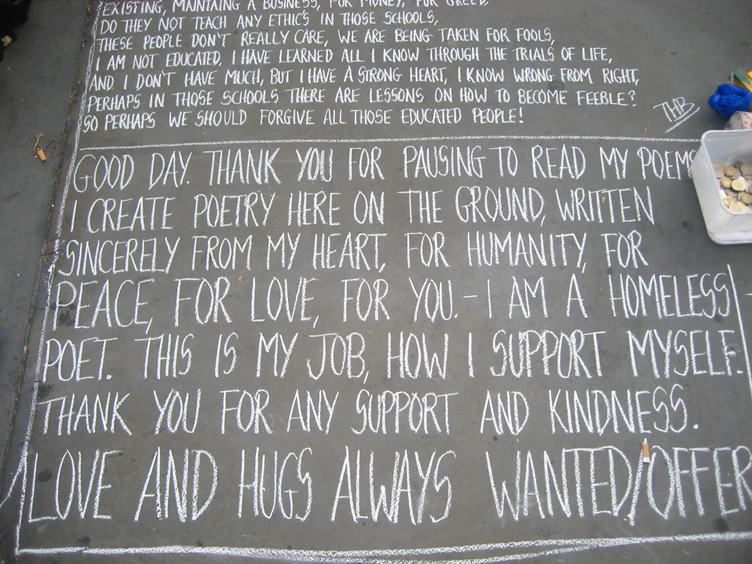 EXISTING, MAINTAING A BUSINESS, FOR MONEY, FOR GREED.
DO THEY NOT TEACH ANY ETHICS IN THOSE SCHOOLS,
THESE PEOPLE DON'T REALLY CARE, WE ARE BEING TAKEN FOR FOOLS,
I AM NOT EDUCATED, I HAVE LEARNED ALL I KNOW THROUGH THE TRIALS OF LIFE,
AND I DON'T HAVE MUCH, BUT I HAVE A STRONG HEART, I KNOW WRONG FROM RIGHT,
PERHAPS IN THOSE SCHOOLS THERE ARE LESSONS ON HOW TO BECOME FEEBLE?
SO PERHAPS WE SHOULD FORGIVE ALL THOSE EDUCATED PEOPLE!
THB
GOOD DAY. THANK YOU FOR PAUSING TO READ MY POEM
I CREATE POETRY HERE ON THE GROUND, WRITTEN
SINCERELY FROM MY HEART, FOR HUMANITY, FOR
PEACE, FOR LOVE, FOR YOU. - I AM A HOMELESS
POET. THIS IS MY JOB, HOW I SUPPORT MYSELF.
THANK YOU FOR ANY SUPPORT AND KINDNESS.
LOVE AND HUGS ALWAYS WANTED/OFFER